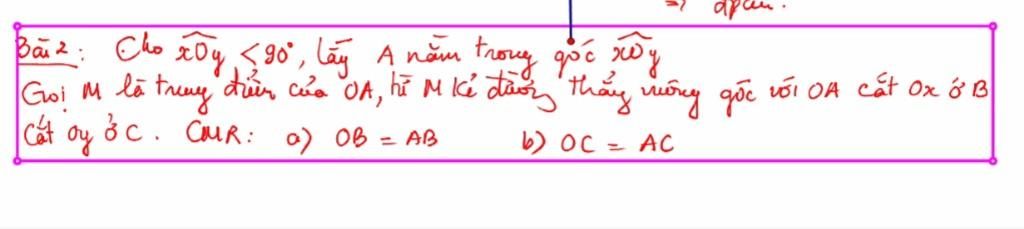 => đpcm.
Bài 2: Cho xOy < 90°, lấy A nằm trong góc xOy
Gọi M là trung điểm của OA, từ M kẻ đường thẳng vuông góc với OA cắt Ox ở B
cắt Oy ở C. CMR: a) OB = AB b) OC = AC